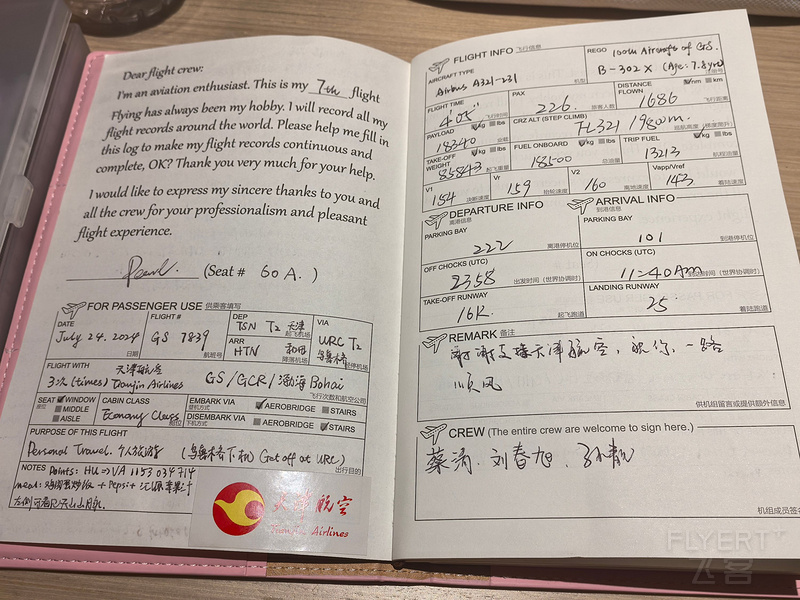 Dear flight crew:
I'm an aviation enthusiast. This is my 7th flight
Flying has always been my hobby. I will record all my
flight records around the world. Please help me fill in
this log to make my flight records continuous and
complete, OK? Thank you very much for your help.
I would like to express my sincere thanks to you and
all the crew for your professionalism and pleasant
flight experience.
Pearl. (Seat # 60A.)
FOR PASSENGER USE 供乘客填写
DATE July 24. 2024 日期
FLIGHT # GS 7839 航班号
DEP TSN T2 天津 起飞机场
ARR HTN 和田 降落机场
VIA URC T2 乌鲁木齐 经停机场
FLIGHT WITH 天津航空
3次 (times) Tianjin Airlines GS/GCR/渤海 Bohai
飞行次数和航空公司
SEAT 座位 WINDOW MIDDLE AISLE
CABIN CLASS Economy Class 舱位
EMBARK VIA 登机方式 AEROBRIDGE STAIRS
DISEMBARK VIA 下机方式 AEROBRIDGE STAIRS
PURPOSE OF THIS FLIGHT
Personal Travel. 个人旅游 (乌鲁木齐下机) Get off at URC)
出行目的
NOTES Points: HU=>VA 1153 034714
meal: + Pepsi + 汇源苹果汁
天津航空
Tianjin Airlines
FLIGHT INFO 飞行信息
AIRCRAFT TYPE Airbus A321-231 机型
REGO 100th Aircraft of GS.
B-302X (Age: 7.8yrs)
FLIGHT TIME 4:05" 飞行时间
PAX 226. 旅客人数
DISTANCE FLOWN nm km 1686 飞行距离
PAYLOAD kg lbs 18340 业载
CRZ ALT (STEP CLIMB) FL321 / 9800m. 巡航高度（梯度爬升）
TAKE-OFF WEIGHT kg lbs 85843 起飞重量
FUEL ONBOARD kg lbs 18500 总油量
TRIP FUEL kg lbs 13213 航程油量
V1 154 决断速度
Vr 159 抬轮速度
V2 160 离地速度
Vapp/Vref 143 着陆速度
DEPARTURE INFO 离港信息
PARKING BAY 222 离港停机位
OFF CHOCKS (UTC) 2358 出发时间（世界协调时）
TAKE-OFF RUNWAY 16R. 起飞跑道
ARRIVAL INFO 到港信息
PARKING BAY 101 到港停机位
ON CHOCKS (UTC) 11:40Am 到达时间（世界协调时）
LANDING RUNWAY 25 着陆跑道
REMARK 备注
谢谢支持天津航空，祝你，一路
顺风
供机组留言或提供额外信息
CREW (The entire crew are welcome to sign here.)
蔡涛. 刘春旭.
机组成员签名
FLYERT
飞客